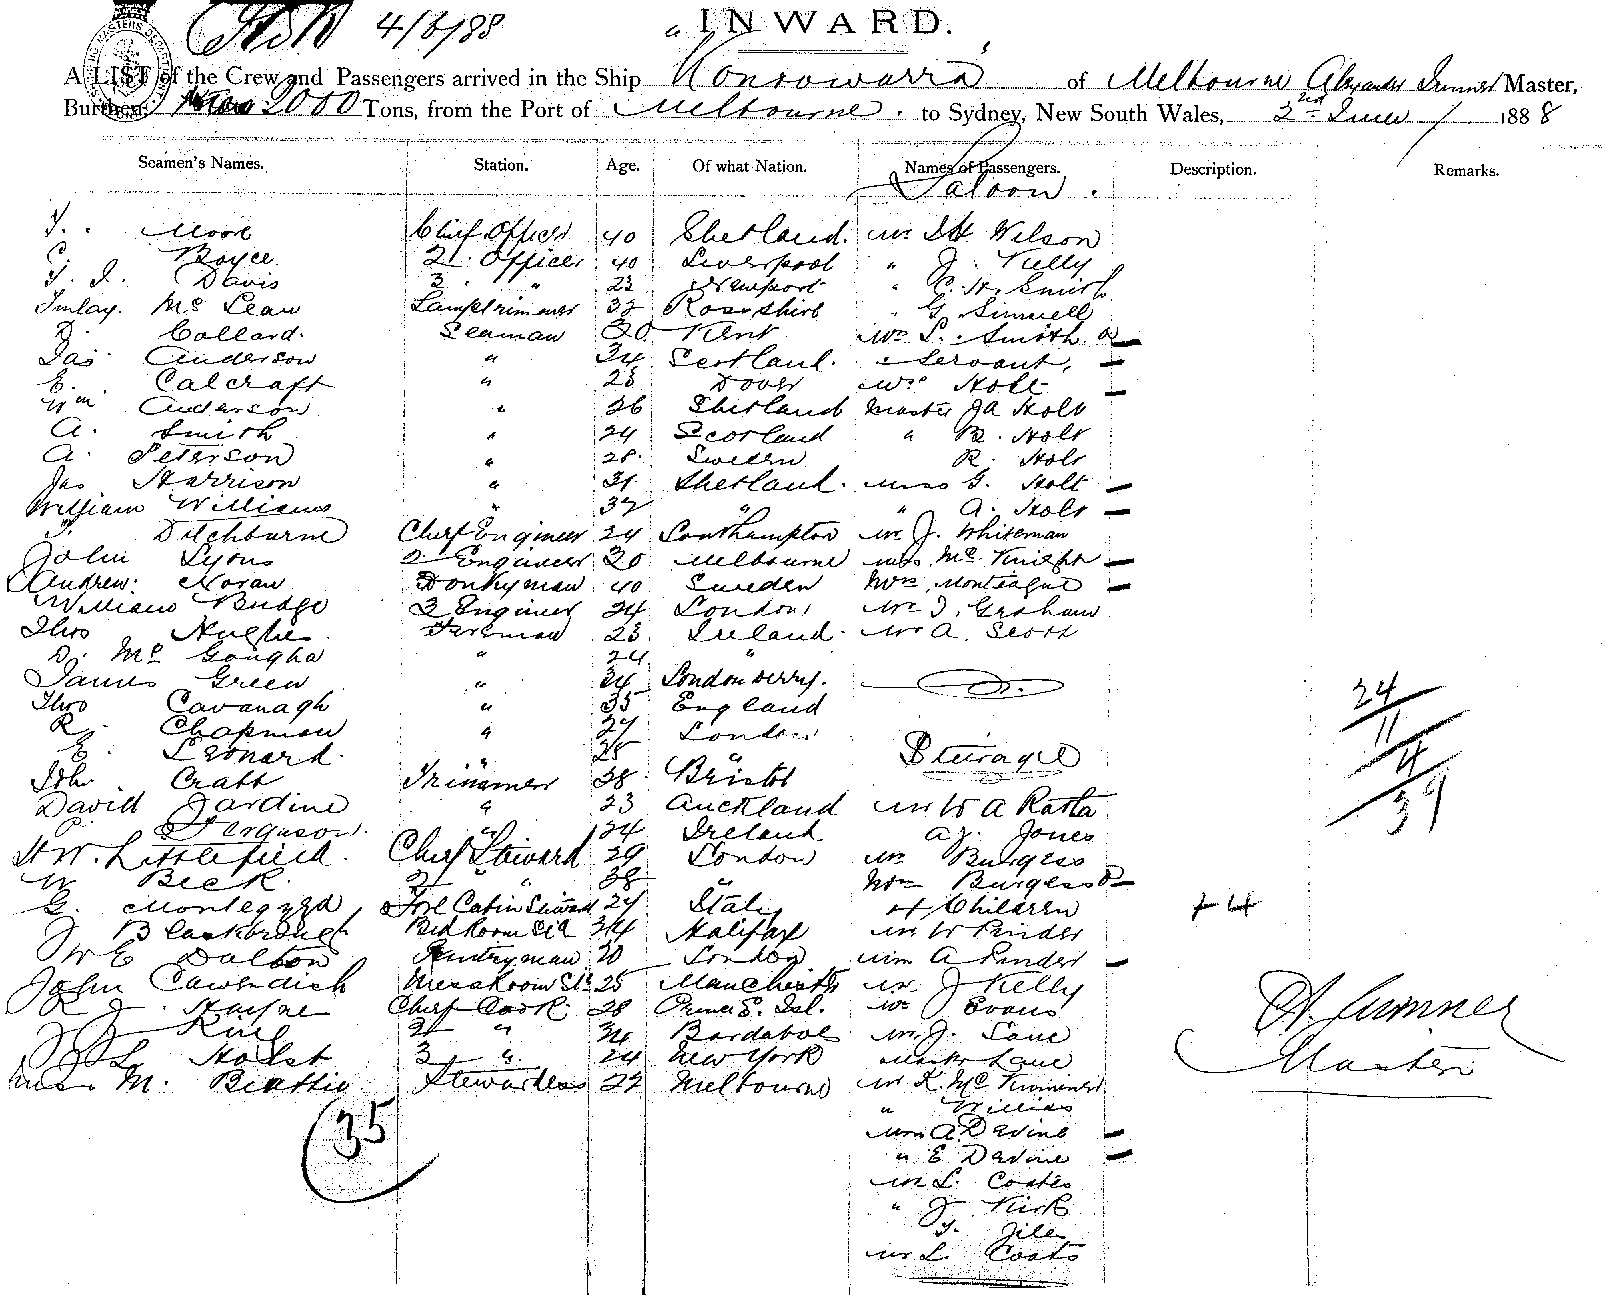 4/6/88
"INWARD."
A LIST of the Crew and Passengers arrived in the Ship Konoowarra of Melbourne Alexander Sumner Master,
Burthen, 2000 Tons, from the Port of Melbourne to Sydney, New South Wales, 2nd June 1888
Seamen's Names. Station. Age. Of what Nation. Names of Passengers. Description. Remarks.
Saloon.
Chief Officer 40 Shetland. Mr Wilson
C. Boyce 2. Officer 40 Liverpool " J. Kelly
T. J. Davis 3 " 23 Newport " C. H. Smith
Finlay. Mc Lean Lamptrimmer 32 Rosshire " G.
D. Collard. Seaman 20 Kent Mrs S. Smith &
Jas Anderson " 24 Scotland. Servant,
E. Calcraft " 23 Dover Mrs Holt
Wm Anderson " 26 Shetland Master JA Holt
A. Smith " 24 Scotland " B. Holt
A. Peterson " 28 Sweden R. Holt
Jas Harrison " 31 Shetland. Miss G. Holt
William Williams " 37 " " A. Holt
T. Ditchburne Chief Engineer 24 Southampton Mr J. Whiteman
John Lyons 2 Engineer 30 Melbourne Miss Mc Knight
Andrew. Moran Donkyman 40 Sweden Mrs Monteague
William Budge 3 Engineer 24 London Mr J. Graham
Thos Hughes Fireman 23 Ireland. Mr A. Scott
D. Mc Gougha " 24 "
James Green " 34 Londonderry.
Thos Cavanagh " 35 England
R. Chapman " 27 London
E. Leonard. " 25 "
Steerage
Joh. Crabb Trimmer 28 Bristol
David Jardine " 23 Auckland Mr W A Ratta
P. Ferguson. " 24 Ireland A J. Jones
H W. Littlefield. Chief Steward 29 London Mr Burgess
W Beck. 2 " " 38 " Mrs Burgess &
G. Montegzza Fore Cabin Steward 24 Italy 4 Children + 4
J Blackbrough Bed Room Std 34 Halifax Mr W Pinder
W E Dalton Pantryman 20 London Mrs A Pinder
John Cavendish Messroom Std 25 Manchester Mr J Kelly
R J. Hayne Chief Cook 28 Prince E. Isl. Mr J Evans
J King 2 " 34 Bardabos Mr J. Lane
J L Holst 3 " 24 New York Master Lane
Miss M. Beattie Stewardess 22 Melbourne Mr K. Mc
" Willias
Mrs A Devine
" E Devine
Mr L. Coates
" J Kirk
T. Jiles
Mr L. Coats
35
24
11
4
39
A. Sumner
Master